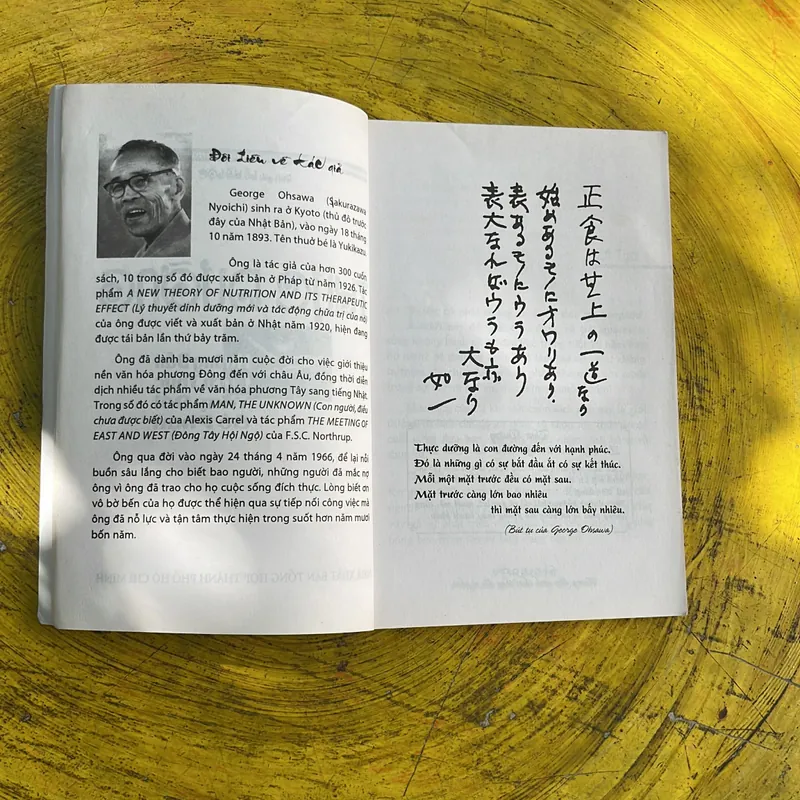 Đôi Liên về tác giả
George Ohsawa (Sakurazawa
Nyoichi) sinh ra ở Kyoto (thủ đô trước
đây của Nhật Bản), vào ngày 18 tháng
10 năm 1893. Tên thuở bé là Yukikazu.
Ông là tác giả của hơn 300 cuốn
sách, 10 trong số đó được xuất bản ở Pháp từ năm 1926. Tác
phẩm A NEW THEORY OF NUTRITION AND ITS THERAPEUTIC
EFFECT (Lý thuyết dinh dưỡng mới và tác động chữa trị của nó)
của ông được viết và xuất bản ở Nhật năm 1920, hiện đang
được tái bản lần thứ bảy trăm.
Ông đã dành ba mươi năm cuộc đời cho việc giới thiệu
nền văn hóa phương Đông đến với châu Âu, đồng thời diễn
dịch nhiều tác phẩm về văn hóa phương Tây sang tiếng Nhật.
Trong số đó có tác phẩm MAN, THE UNKNOWN (Con người, điều
chưa được biết) của Alexis Carrel và tác phẩm THE MEETING OF
EAST AND WEST (Đông Tây Hội Ngộ) của F.S.C. Northrup.
Ông qua đời vào ngày 24 tháng 4 năm 1966, để lại nỗi
buồn sâu lắng cho biết bao người, những người đã mắc nợ
ông vì ông đã trao cho họ cuộc sống đích thực. Lòng biết ơn
vô bờ bến của họ được thể hiện qua sự tiếp nối công việc mà
ông đã nỗ lực và tận tâm thực hiện trong suốt hơn năm mươi
bốn năm.
正食は無上の一道なり
始めあるモノにオワリあり、
表あるモノにウラあり
表大なればウラも亦
大なり
如一
Thực dưỡng là con đường đến với hạnh phúc.
Đó là những gì có sự bắt đầu ắt có sự kết thúc.
Mỗi một mặt trước đều có mặt sau.
Mặt trước càng lớn bao nhiêu
thì mặt sau càng lớn bấy nhiêu.
(Bút tự của George Ohsawa)